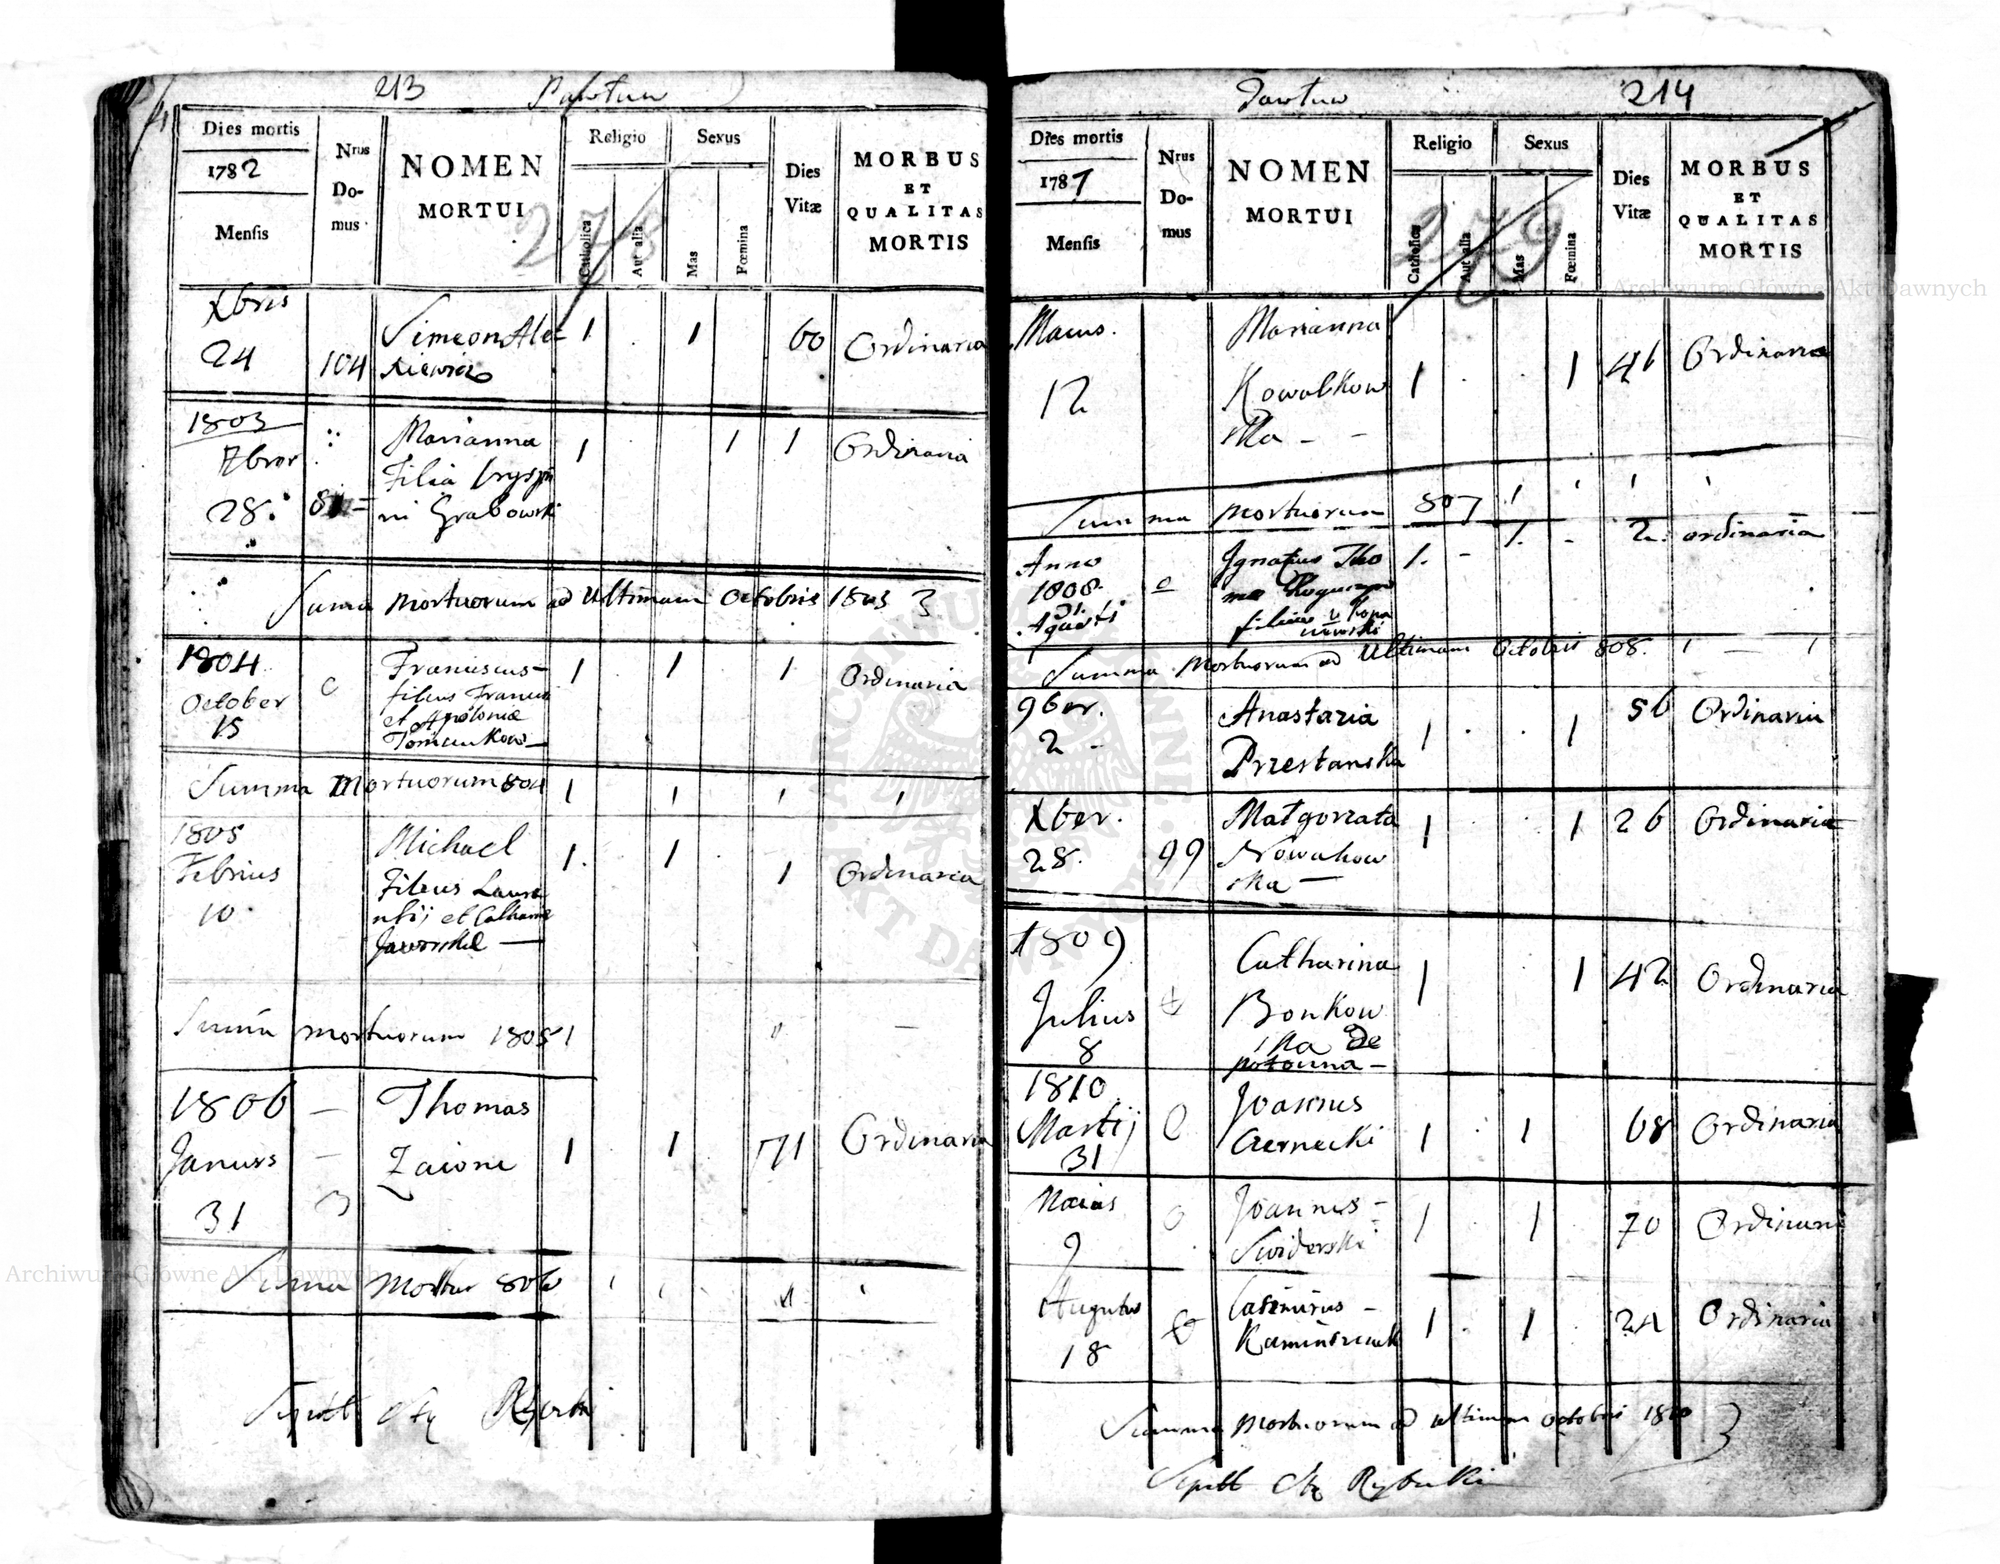 213
Dies mortis
1782
Mensis
Nrus
Do-
mus
NOMEN
MORTUI
Religio
Catholica
Aut alia
Sexus
Mas
Fœmina
Dies
Vitæ
MORBUS
ET
QUALITAS
MORTIS
278
Xbris
24 104 Simeon Ale-
xiewicz 1 1 60 Ordinaria
1803
7bror
28.
Marianna
Filia
ni Grabowski
1 1 1 Ordinaria
Suma Mortuorum ad Ultimam Octobris 1803 3
1804
October
15
C
Franciscus
filius Francisci
et Apolonia
1 1 1 Ordinaria
Summa Mortuorum 804 1 1 1 1
1805
Febrius
10.
Michael
Filius Laure
ntij et Catharinae
1. 1 1 Ordinaria
Suma mortuorum 1805 1
1806
Januars
31
Thomas
Zaionc
1 1 71 Ordinaria
Suma Mortuor 806
214
Dies mortis
1787
Mensis
Nrus
Do-
mus
NOMEN
MORTUI
Religio
Catholica
Aut alia
Sexus
Mas
Fœmina
Dies
Vitæ
MORBUS
ET
QUALITAS
MORTIS
279
Maius.
12
Marianna
Kowalkow
ska
1 1 46 Ordinaria
Summa mortuorum 807 1
Anno
1808
31
Agusti
Ignatius Tho
filius
1. 1. 2. ordinaria
Summa Mortuorum ad Ultimam Octobris 808. 1 1
9ber.
2
Anastazia
Przestanska
1 1 56 Ordinaria
Xber.
28.
99
Małgorzata
Nowakow
ska
1 1 26 Ordinaria
1809
Julius
8
Catharina
Bonkow
ska De
1 1 42 Ordinaria
1810
Martij
31
Joannes
Czernecki
1 1 68 Ordinaria
Maius
9
Joannes
Swiderski
1 1 70 Ordinari
Augustus
18
Casimirus
1 1 24 Ordinaria
Summa Mortuorum ad ultimam octobris 1810 3
Archiwum Główne Akt Dawnych
Archiwum Główne Akt Dawnych
ARCHIWUM GŁÓWNE AKT DAWNYCH